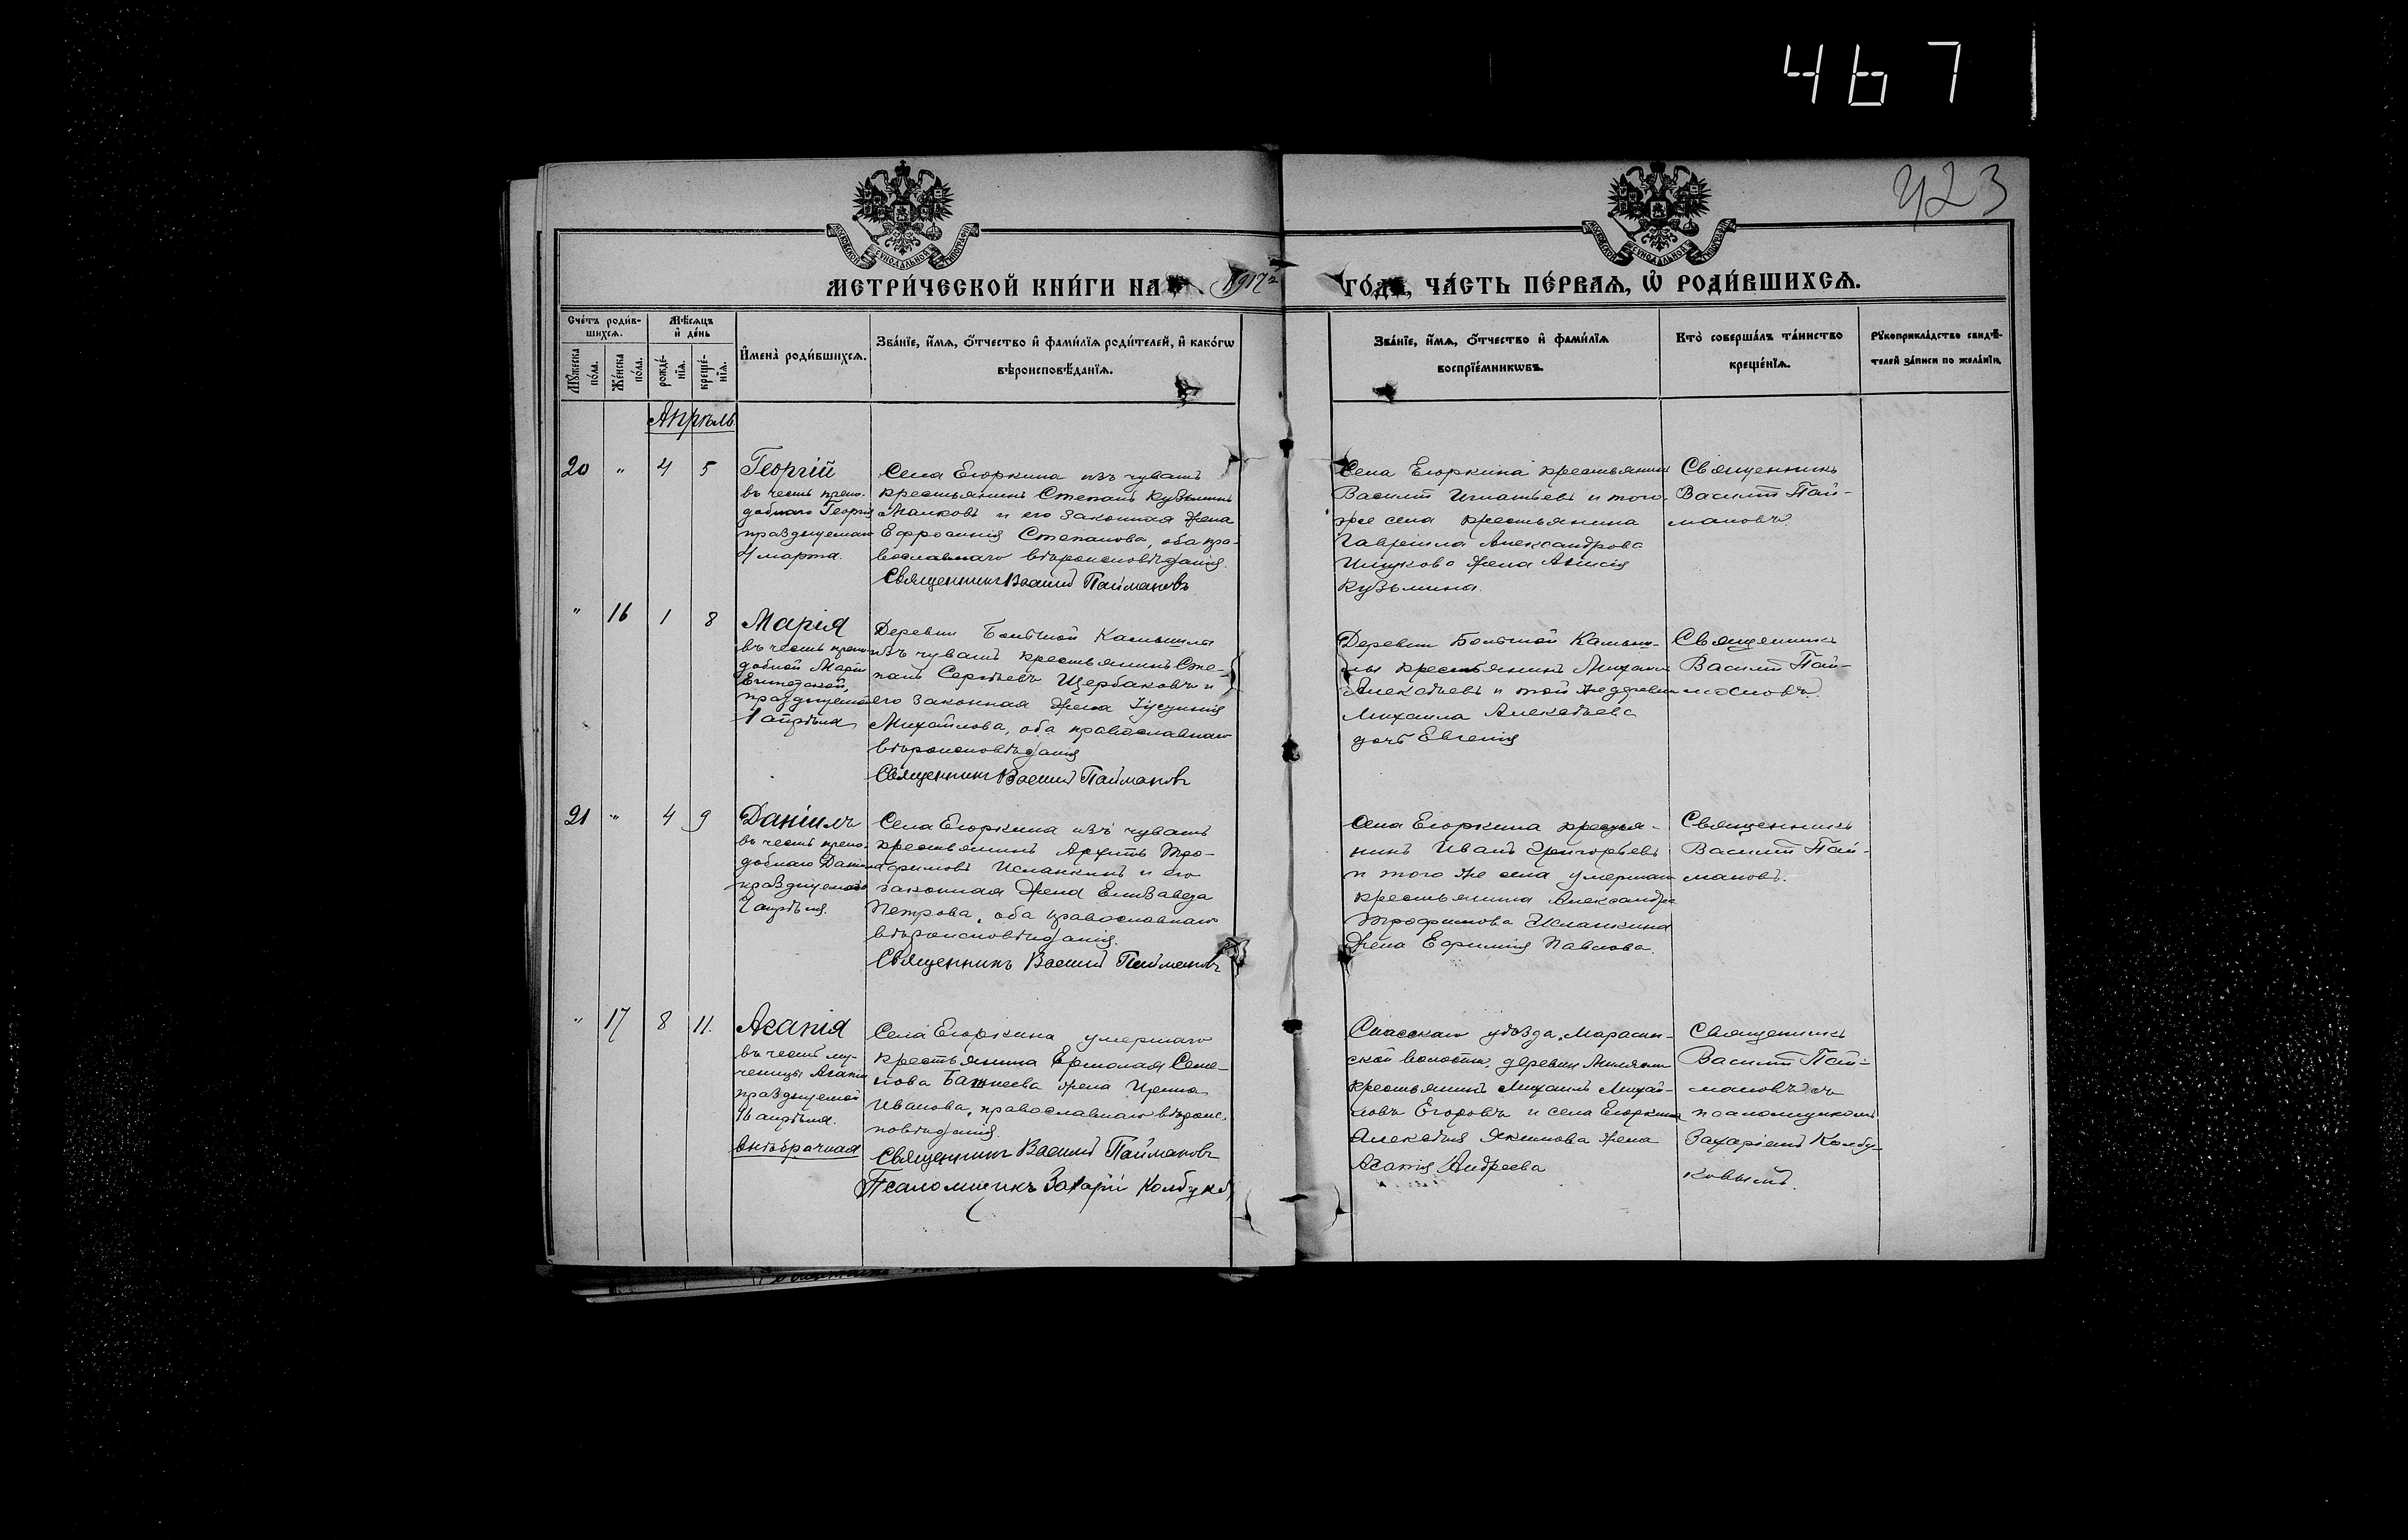 467
423
МОСКОВСКОЙ СУНОДАЛЬНОЙ ТИПОГРАФІИ
МОСКОВСКОЙ СУНОДАЛЬНОЙ ТИПОГРАФІИ
МЕТРИ́ЧЕСКОЙ КНИ́ГИ НА 1917 г ГО́ДЪ, ЧА́СТЬ ПЕ́РВАЯ, Ѡ҆ РОДИ́ВШИХСЯ.
Сче́тъ роди́в-
шихся.
Мѣ́сяцъ
и҆ де́нь
Му́жеска
по́ла.
Же́нска
по́ла.
рожде́-
нїя.
креще́-
нїя.
И҆мена̀ роди́вшихся.
Зва́нїе, и҆́мя, ѻ҆́тчество и҆ фами́лїя роди́телей, и҆ како́гѡ
вѣроисповѣ́данїя.
Зва́нїе, и҆́мя, ѻ҆́тчество и҆ фами́лїя
воспрїе́мникѡвъ.
Кто̀ соверша́лъ та́инство
креще́нїя.
Рукоприкла́дство свидѣ́-
телей за́писи по жела́нїю.
Апрѣль
20 " 4 5
Георгій
въ честь препо-
добнаго Георгія
празднуемаго
4 марта.
Села Егоркина изъ чувашъ
крестьянинъ Степанъ Кузьминъ
Малковъ и его законная жена
Ефросинія Степанова, оба пра-
вославнаго вѣроисповѣданія.
Священникъ Василій Паймановъ
Села Егоркина крестьянинъ
Василій Игнатьевъ и того
же села крестьянина
Гавріила Александрова
жена Анисія
Кузьмина.
Священникъ
Василій Пай-
мановъ.
" 16 1 8
Марія
въ честь препо-
добной Маріи
Египетской,
празднуемой
1 апрѣля
Деревни Большой Камышлы
изъ чувашъ крестьянинъ Сте-
панъ Сергѣевъ Щербаковъ и
его законная жена Іустинія
Михайлова, оба православнаго
вѣроисповѣданія
Священникъ Василій Паймановъ
Деревни Большой Камыш-
лы крестьянинъ Михаилъ
Алексѣевъ и той же деревни
Михаила Алексѣева
дочь Евгенія
Священникъ
Василій Пай-
мановъ.
21 " 4 9
Даніилъ
въ честь препо-
добнаго Даніила
празднуемаго
апрѣля.
Села Егоркина изъ чувашъ
крестьянинъ Архипъ Тро-
фимовъ Исланкинъ и его
законная жена Елизавета
Петрова, оба православнаго
вѣроисповѣданія.
Священникъ Василій Паймановъ
Села Егоркина крестья-
нинъ Иванъ Григорьевъ
и того же села умершаго
крестьянина Александра
Трофимова Исланкина
жена Ефимія Павлова.
Священникъ
Василій Пай-
мановъ.
" 17 8 11.
Агапія
въ честь му-
ченицы Агапіи
празднуемой
16 апрѣля.
внѣбрачная
Села Егоркина умершаго
крестьянина Ермолая Семе-
нова жена Ирина
Иванова, православнаго вѣроис-
повѣданія.
Священникъ Василій Паймановъ
Псаломщикъ Захарій Колбуковъ
Спасскаго уѣзда, Марасин-
ской волости, деревни
крестьянинъ Михаилъ Михай-
ловъ Егоровъ и села Егоркина
Алексѣя Якимова жена
Агапія Андреева
Священникъ
Василій Пай-
мановъ съ
псаломщикомъ
Захаріемъ Колбу-
ковымъ.